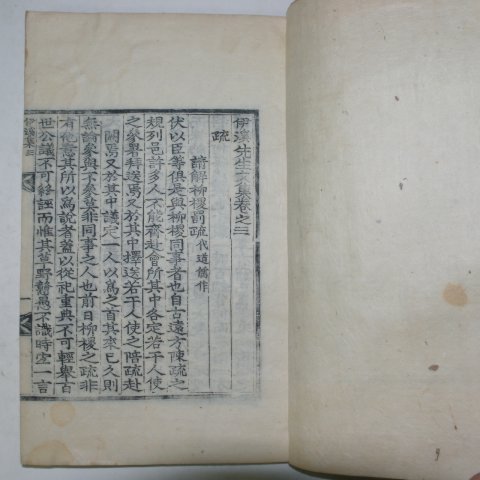 伊溪先生文集卷之三
疏
請解柳㮨罰疏代道儒作
伏以臣等俱是與柳㮨同事者也自古遠方陳疏之
規列邑許多人不能齊赴會所其中各定若干人使
之參擧拜送焉又於其中擇送若干人使之陪疏赴
闕焉又於其中議定一人以爲之首其來已久則
無論參與不參莫非同事之人也前日柳㮨之疏非
有他意其所以爲說者蓋以從祀重典不可輕擧百
世公議不可終誣而惟其草野戇愚不識時宜一言
伊溪集三